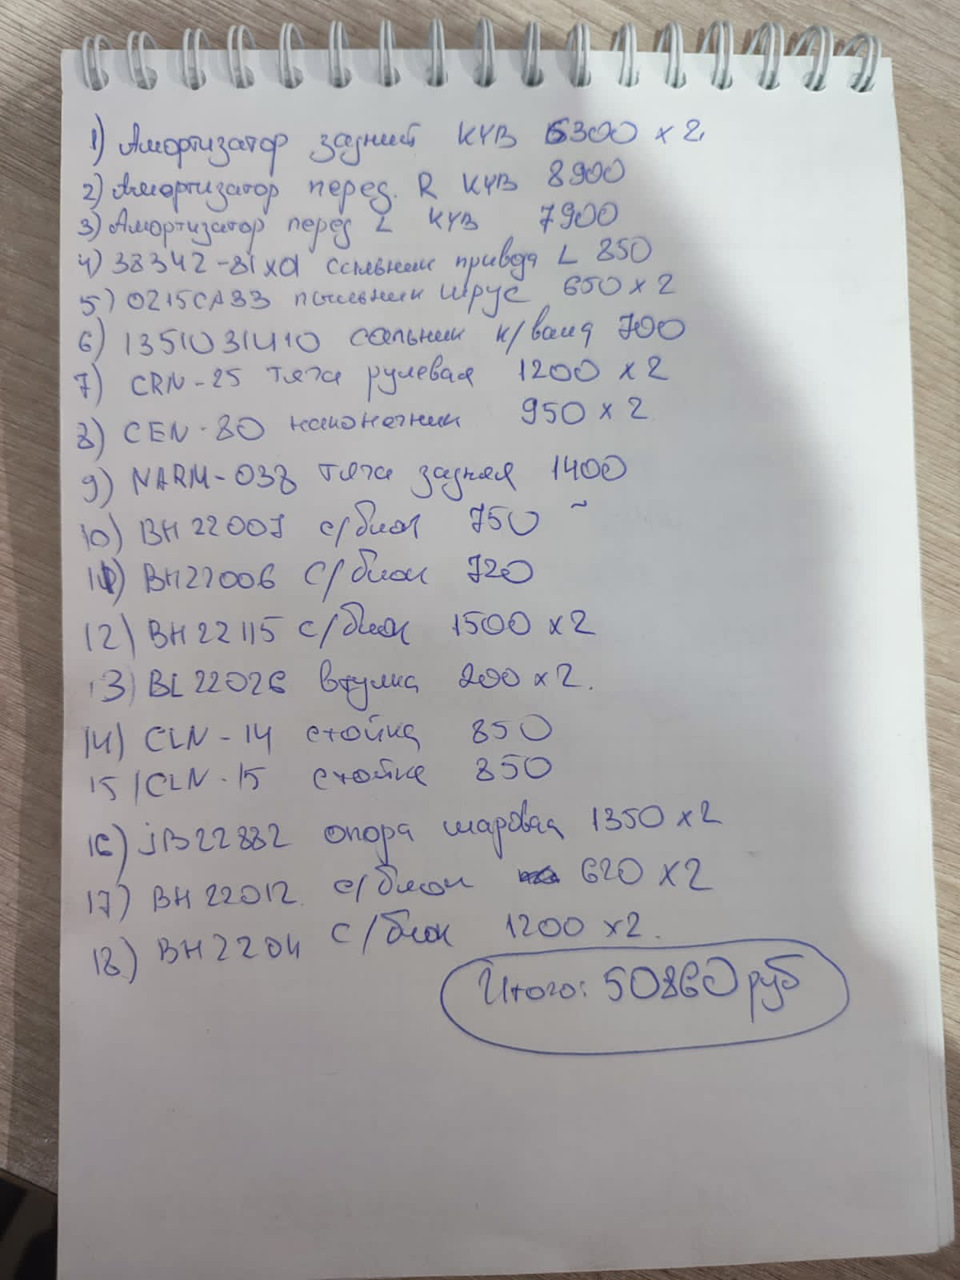 1) Амортизатор задний KYB 6300 x 2
2) Амортизатор перед. R KYB 8900
3) Амортизатор перед L KYB 7900
4) 38342-81x01 сальник привода L 850
5) 0215CA33 пыльник шрус 650 x 2
6) 1351031U10 сальник к/вала 700
7) CRN-25 тяга рулевая 1200 x 2
8) CEN-80 наконечник 950 x 2
9) NARM-038 тяга задняя 1400
10) BH22007 с/блок 750
11) BH22006 с/блок 720
12) BH22115 с/блок 1500 x 2
13) BL22026 втулка 200 x 2.
14) CLN-14 стойка 850
15) CLN-15 стойка 850
16) JB22882 опора шаровая 1350 x 2
17) BH22012 с/блок 620 x 2
18) BH2204 с/блок 1200 x 2.
Итого: 50860 руб